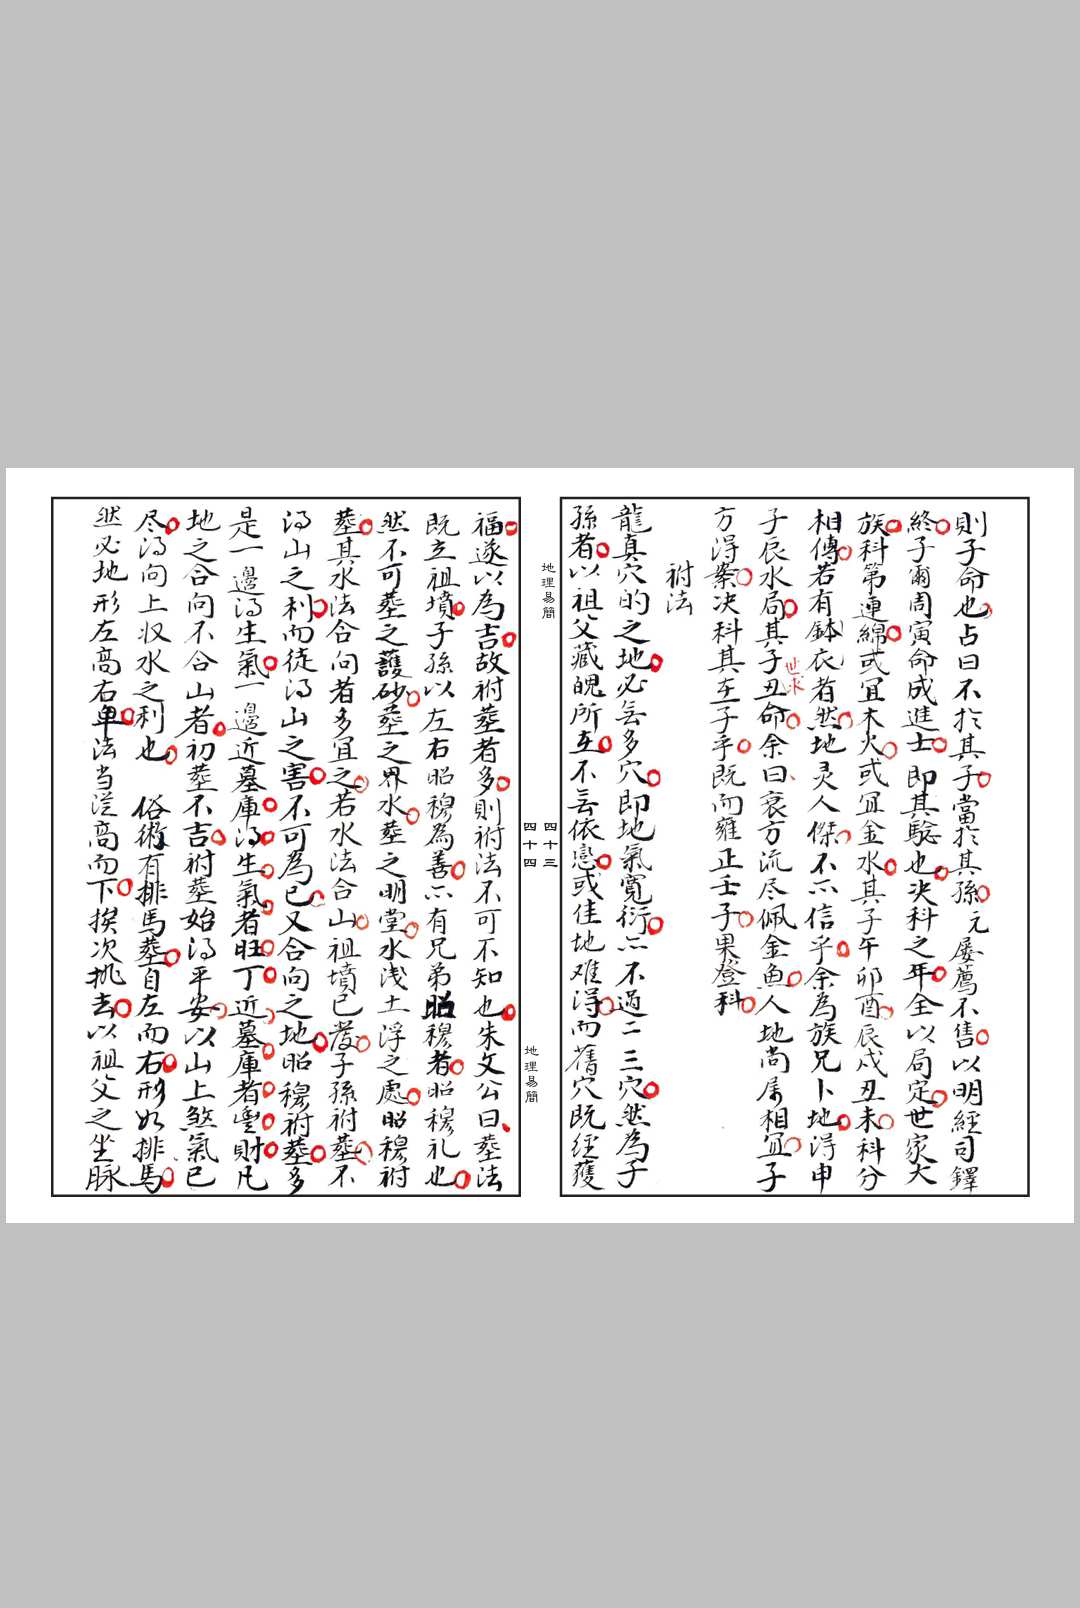 則子命也占曰不於其子當於其孫元屡薦不售以明經司鐸
終子爾周寅命成進士即其騐也决科之年全以局定世家大
族科第連綿或冝木火或冝金水其子午卯酉辰戍丑未科分
相傳若有鉢衣者然地灵人傑不亦信乎余為族兄卜地淂申
子辰水局其子丑命余曰衰方流尽佩金魚人地尚属相冝子
世求
方淂案决科其在子乎既而雍正壬子果登科
祔法
龍真穴的之地必無多穴即地氣寬衍亦不過二三穴然為子
孫者以祖父藏魄所在不無依戀或佳地难淂而舊穴既經獲
地理易簡
四十三
福遂以為吉故祔塟者多則祔法不可不知也朱文公曰塟法
既立祖墳子孫以左右昭穆為善亦有兄弟昭穆者昭穆礼也
然不可塟之護砂塟之界水塟之明堂水浅土浮之處昭穆祔
塟其水法合向者多冝之若水法合山祖墳已發子孫祔塟不
淂山之利而徒淂山之害不可為已又合向之地昭穆祔塟多
是一邊淂生氣一邊近墓庫淂生氣者旺丁近墓庫者豊財凡
地之合向不合山者初塟不吉祔塟始淂平安以山上煞氣已
尽淂向上収水之利也 俗術有排馬塟自左而右形如排馬
然必地形左高右单法当從高而下挨次挑去以祖父之坐脉
四十四
地理易簡